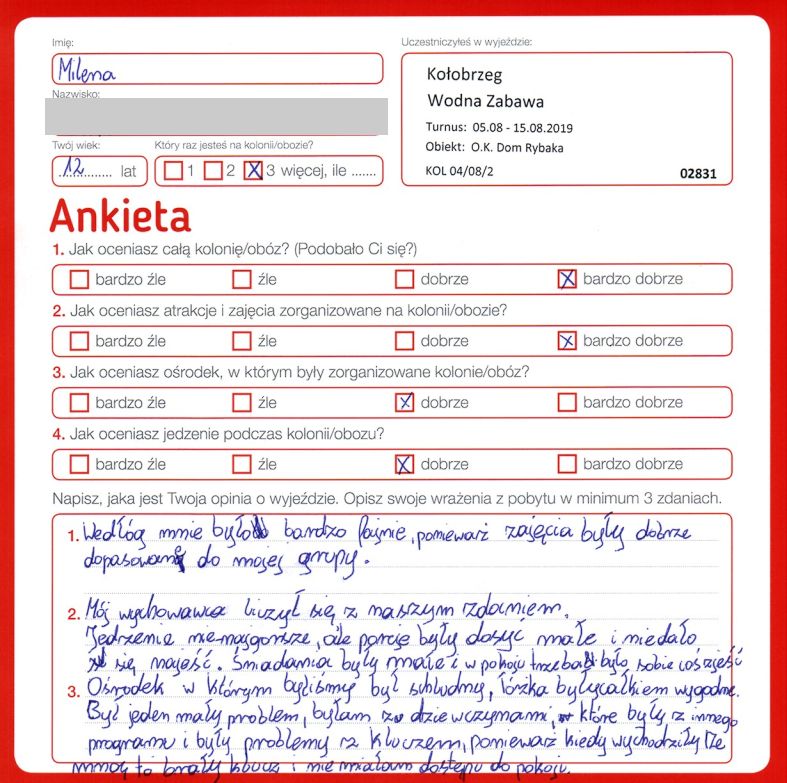 Imię:
Milena
Nazwisko:
Twój wiek:
12 lat
Który raz jesteś na kolonii/obozie?
1 2 3 więcej, ile .......
Uczestniczyłeś w wyjeździe:
Kołobrzeg
Wodna Zabawa
Turnus: 05.08 - 15.08.2019
Obiekt: O.K. Dom Rybaka
KOL 04/08/2 02831
Ankieta
1. Jak oceniasz całą kolonię/obóz? (Podobało Ci się?)
bardzo źle źle dobrze bardzo dobrze
2. Jak oceniasz atrakcje i zajęcia zorganizowane na kolonii/obozie?
bardzo źle źle dobrze bardzo dobrze
3. Jak oceniasz ośrodek, w którym były zorganizowane kolonie/obóz?
bardzo źle źle dobrze bardzo dobrze
4. Jak oceniasz jedzenie podczas kolonii/obozu?
bardzo źle źle dobrze bardzo dobrze
Napisz, jaka jest Twoja opinia o wyjeździe. Opisz swoje wrażenia z pobytu w minimum 3 zdaniach.
1. Wedłóg mnie było bardzo fajnie, ponieważ zajęcia były dobrze
dopasowany do mojej grupy.
2. Mój wychowawca liczył się z naszym zdaniem.
Jedzenie nienajgorsze, ale porcje były dosyć małe i niedało
się najeść. Śniadania były małe i w pokoju trzeba było sobie coś zjeść
3. Ośrodek w którym byliśmy był schludny, łóżka były całkiem wygodne.
Był jeden mały problem, byłam z dziewczynami, które były z innego
programu i były problemy z kluczem, ponieważ kiedy wychodziły ze
mną to brały klucz i nie miałam dostępu do pokoju.